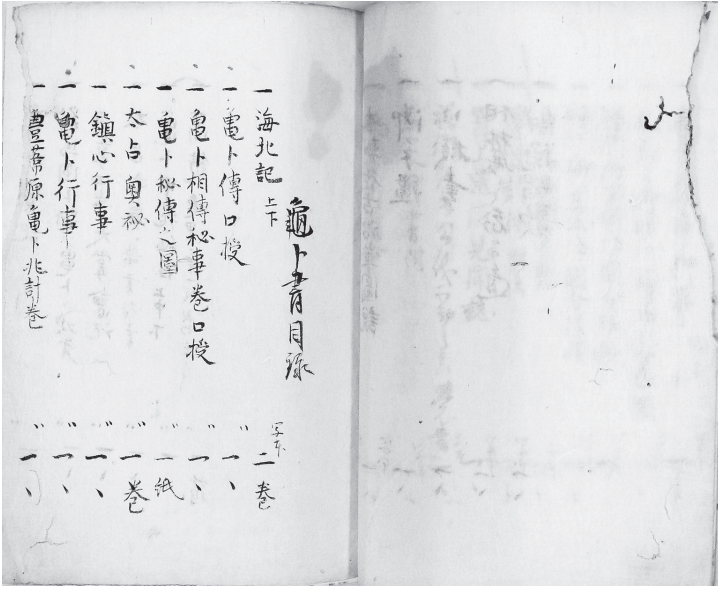 龜卜書目録
一 海北記 上下 写本 二巻
一 亀卜傳口授 〃 一〻
一 亀卜相傳秘事巻口授 〃 一〻
一 亀卜秘傳之圖 〃 一紙
一 太占奥秘 〃 一巻
一 鎮心行事 〃 一〻
一 亀卜行事 〃 一〻
一 豊葦原亀卜兆計巻 〃 一〻